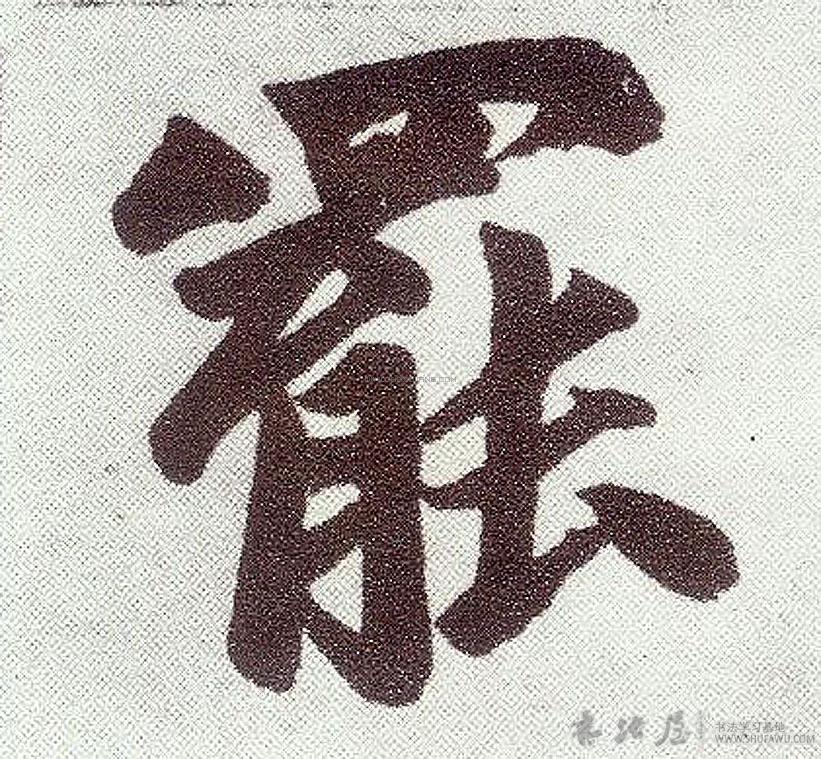 罷
书法屋
书法学习基地
WWW.SHUFAWU.COM